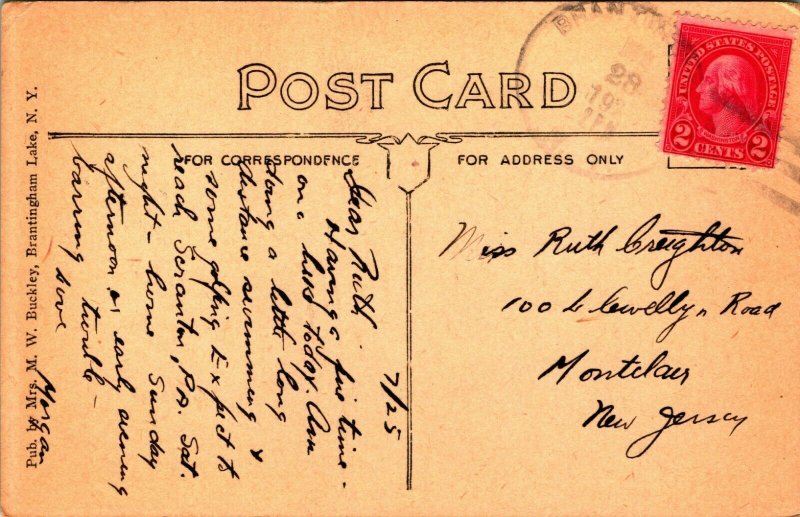 POST CARD
FOR CORRESPONDENCE
FOR ADDRESS ONLY
UNITED STATES POSTAGE
WASHINGTON
2 CENTS 2
28
7/25
Dear Ruth
Having a fine time -
on a lused today. Am
doing a little long
distance swimming &
some golfing Expect to
reach Scranton, Pa. Sat.
night - home Sunday
afternoon or early evening
barring trouble -
Love
Morgan
Miss Ruth Creighton
100 Llewellyn Road
Montclair
New Jersey
Pub. by Mrs. M. W. Buckley, Brantingham Lake, N. Y.